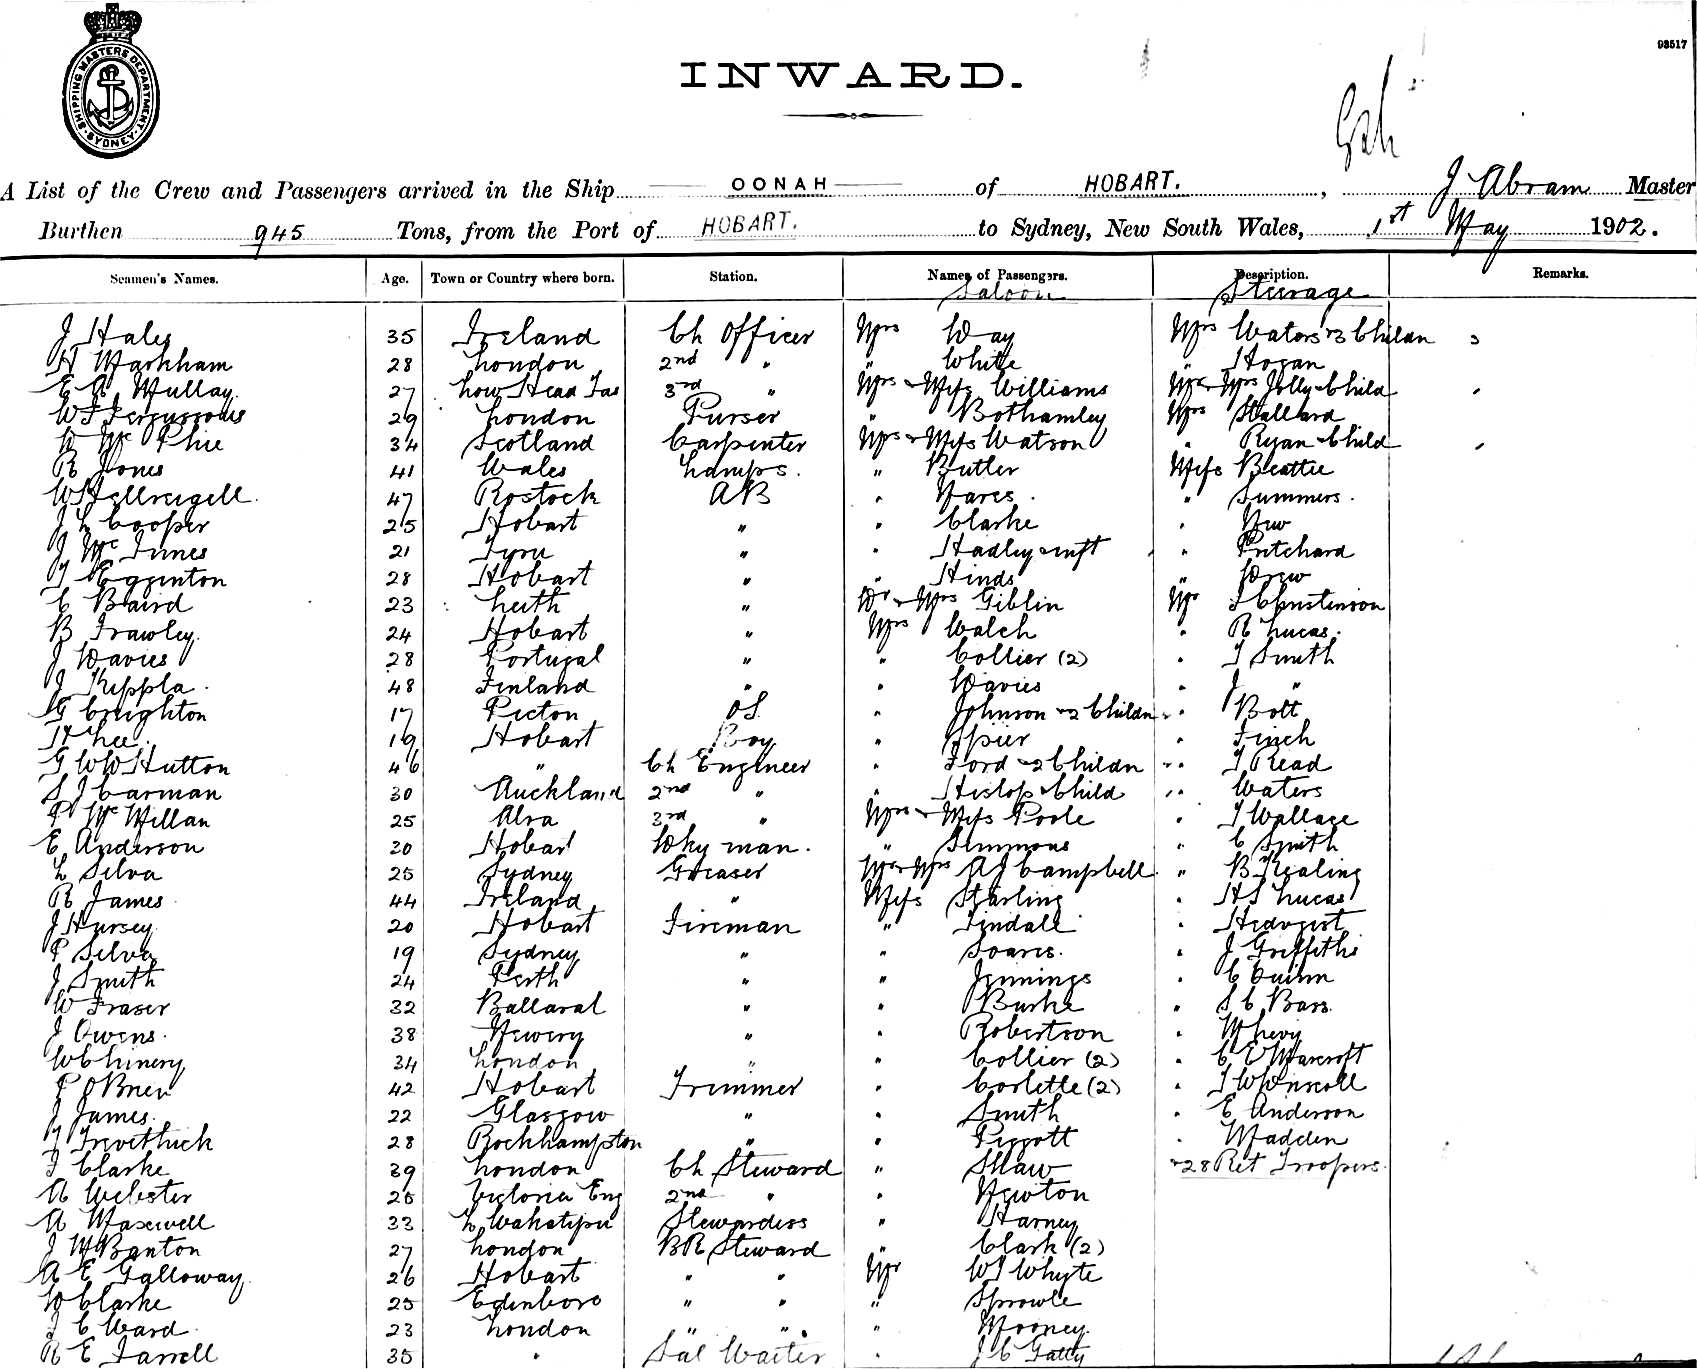 93517
SHIPPING MASTERS DEPARTMENT. SYDNEY.
INWARD.
A List of the Crew and Passengers arrived in the Ship OONAH of HOBART. , J Abram Master
Burthen 945 Tons, from the Port of HOBART. to Sydney, New South Wales, 1st May 1902.
Seamen's Names. Age. Town or Country where born. Station. Names of Passengers. Description. Remarks.
Saloon Steerage
J Hales 35 Ireland Ch Officer Mrs Way Mrs Waters & 3 Childn 3
H Markham 28 London 2nd " " White " Hogan
E A Mullay 27 Low Head Tas 3rd " Mrs & Miss Williams Mr & Mrs Jolly & Child
29 London Purser " Bothamley Mrs Stallard
D Mc Phie 34 Scotland Carpenter Mrs & Miss Watson " Ryan & Child
R Jones 41 Wales Lamps. " Butler Miss Beattie
47 Rostock AB " Nares. " Summers.
J L Cooper 25 Hobart " " Clarke " New
J Mc Innes 21 Tyne " " Hadley & inft " Pritchard
T Egginton 28 Hobart " " Hinds " Drew
C Baird 23 Leith " Dr & Mrs Giblin Mr J Christenson
B Frawley. 24 Hobart " Mrs Walch " R Lucas.
J Davies 28 Portugal " " Collier (2) " T Smith
J Kippla. 48 Finland " " Davies " J "
G Creighton 17 Picton OS " Johnson & 2 Childn " Bott
H Lee. 19 Hobart Boy " Spier " Finch
G W W Hutton 46 " Ch Engineer " Ford & 2 Childn " T Read
S J Carman 30 Auckland 2nd " " Hislop & Child " Waters
P Mc Millan 25 Alva 3rd " Mrs & Miss Poole " J Wallace
E Anderson 30 Hobart Dky man. " Simmons " C Smith
L Silva 25 Sydney Greaser Mr & Mrs A J Campbell " B Kealing
R James 44 Ireland " Miss Starling " H S Lucas
J Hursey 20 Hobart Fireman " Tindale " Hedqvist
P Silva 19 Sydney " " Soares. " J Griffiths
J Smith 24 Perth " " Jennings " C Quinn
W Fraser 32 Ballarat " " Burke " S C Bass.
J Owens. 38 Newry " " Robertson " M
W Chinery 34 London " " Collier (2) " C E Marcroft
P O'Brien 42 Hobart Trimmer " Corlette (2) " T W Driscoll
J James. 22 Glasgow " " Smith " E Anderson
J Trevethick 28 Rockhampton " " Piggott " Madden
F Clarke 39 London Ch Steward " Shaw & 28 Ret Troopers.
A Webster 25 Victoria Eng 2nd " " Newton
A Maxwell 33 L Wakatipu Stewardess " Harney
J W Banton 27 London BR Steward " Clark (2)
A E Galloway. 26 Hobart " " Mr W J Whyte
D Clarke 25 Edinboro " " " Sprowle
J C Ward. 23 London " " " Mooney.
R E Farrell 35 " Sal Waiter " J C Gatty